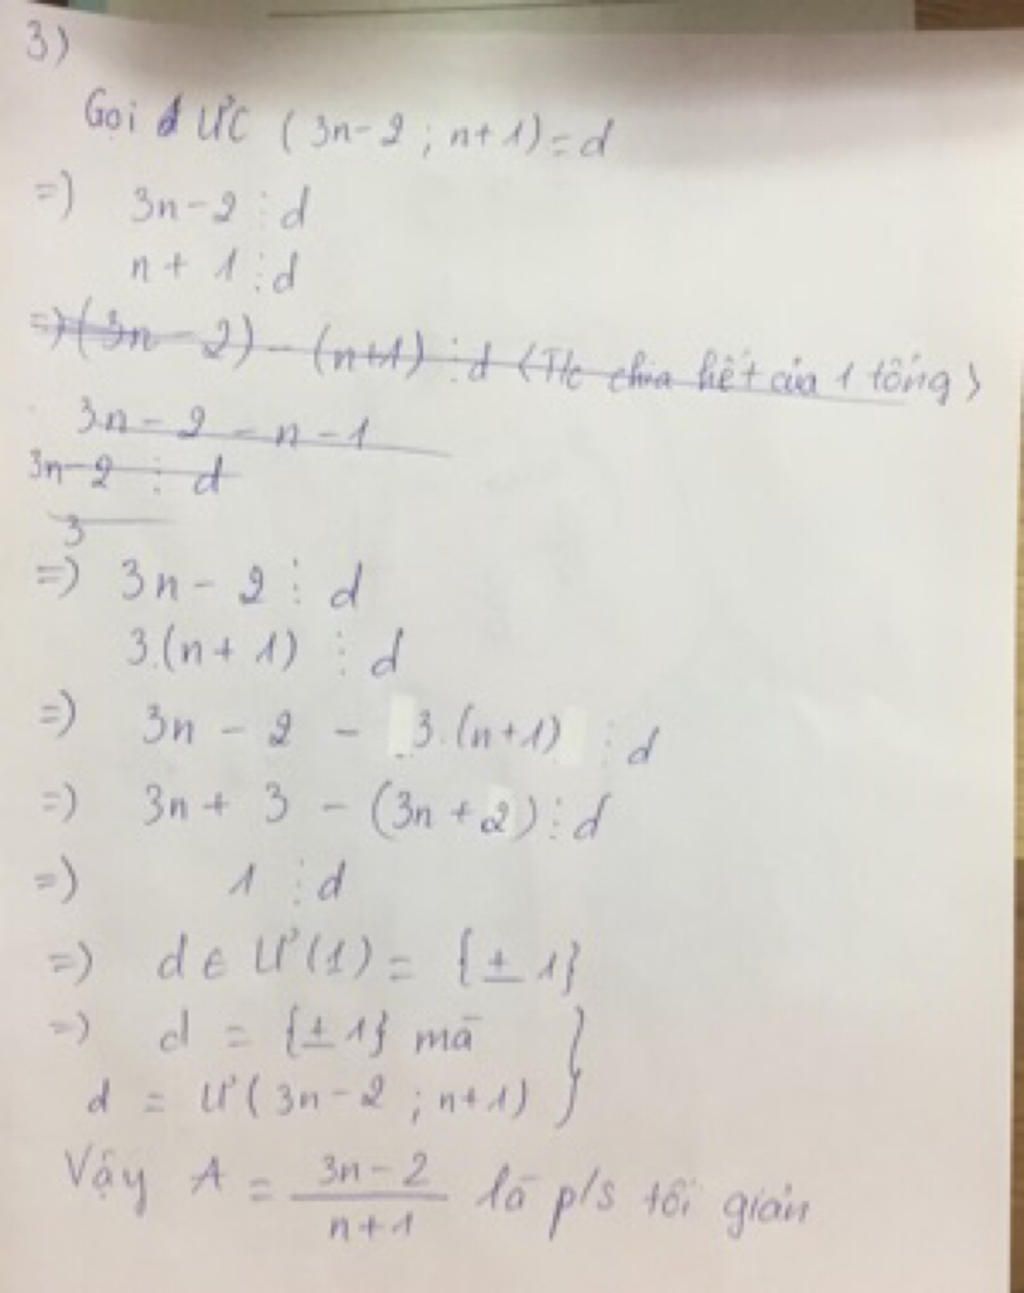 3)
Gọi d ƯC (3n-2; n+1) = d
=) 3n-2 ⋮ d
n + 1 ⋮ d
=) (3n - 2) - (n+1) ⋮ d (T/c chia hết của 1 tổng)
3n - 2 - n - 1
3n-2 ⋮ d
3
=) 3n - 2 ⋮ d
3.(n + 1) ⋮ d
=) 3n - 2 - 3.(n+1) ⋮ d
=) 3n + 3 - (3n + 2) ⋮ d
=) 1 ⋮ d
=) d ∈ Ư(1) = {± 1}
=) d = {± 1} mà }
d = Ư(3n-2; n+1)
Vậy A = \frac{3n-2}{n+1} là p/s tối giản